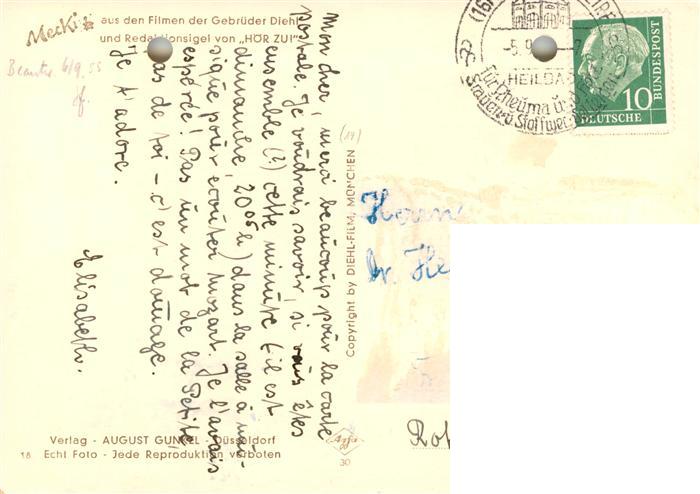 Mecki
aus den Filmen der Gebrüder Diehl
und Redaktionsigel von „HÖR ZU!"
6/9.55
Mon cher, merci beaucoup pour la carte
postale. Je voudrais savoir, si vous êtes
ensemble (?) cette minute (il est
dimanche, 20 05 h) dans la salle à mu-
sique pour écouter Mozart. Je l'avais
espéré! Pas un mot de la Petite,
pas de toi – c'est domage.
Je t'adore.
Elisabeth.
Verlag - AUGUST GUNKEL - Düsseldorf
18 Echt Foto - Jede Reproduktion verboten
Copyright by DIEHL-FILM, MÜNCHEN
(14)
Agfa
30
(16)
-5.9
HEILBAD
für Rheuma
Stoffwechsel
DEUTSCHE
BUNDESPOST
10
Herrn
Dr. He
Rot